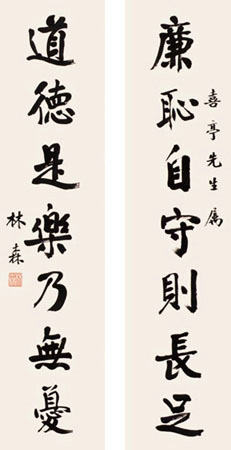 廉恥自守則長足
喜亭先生属
道德是樂乃無憂
林森